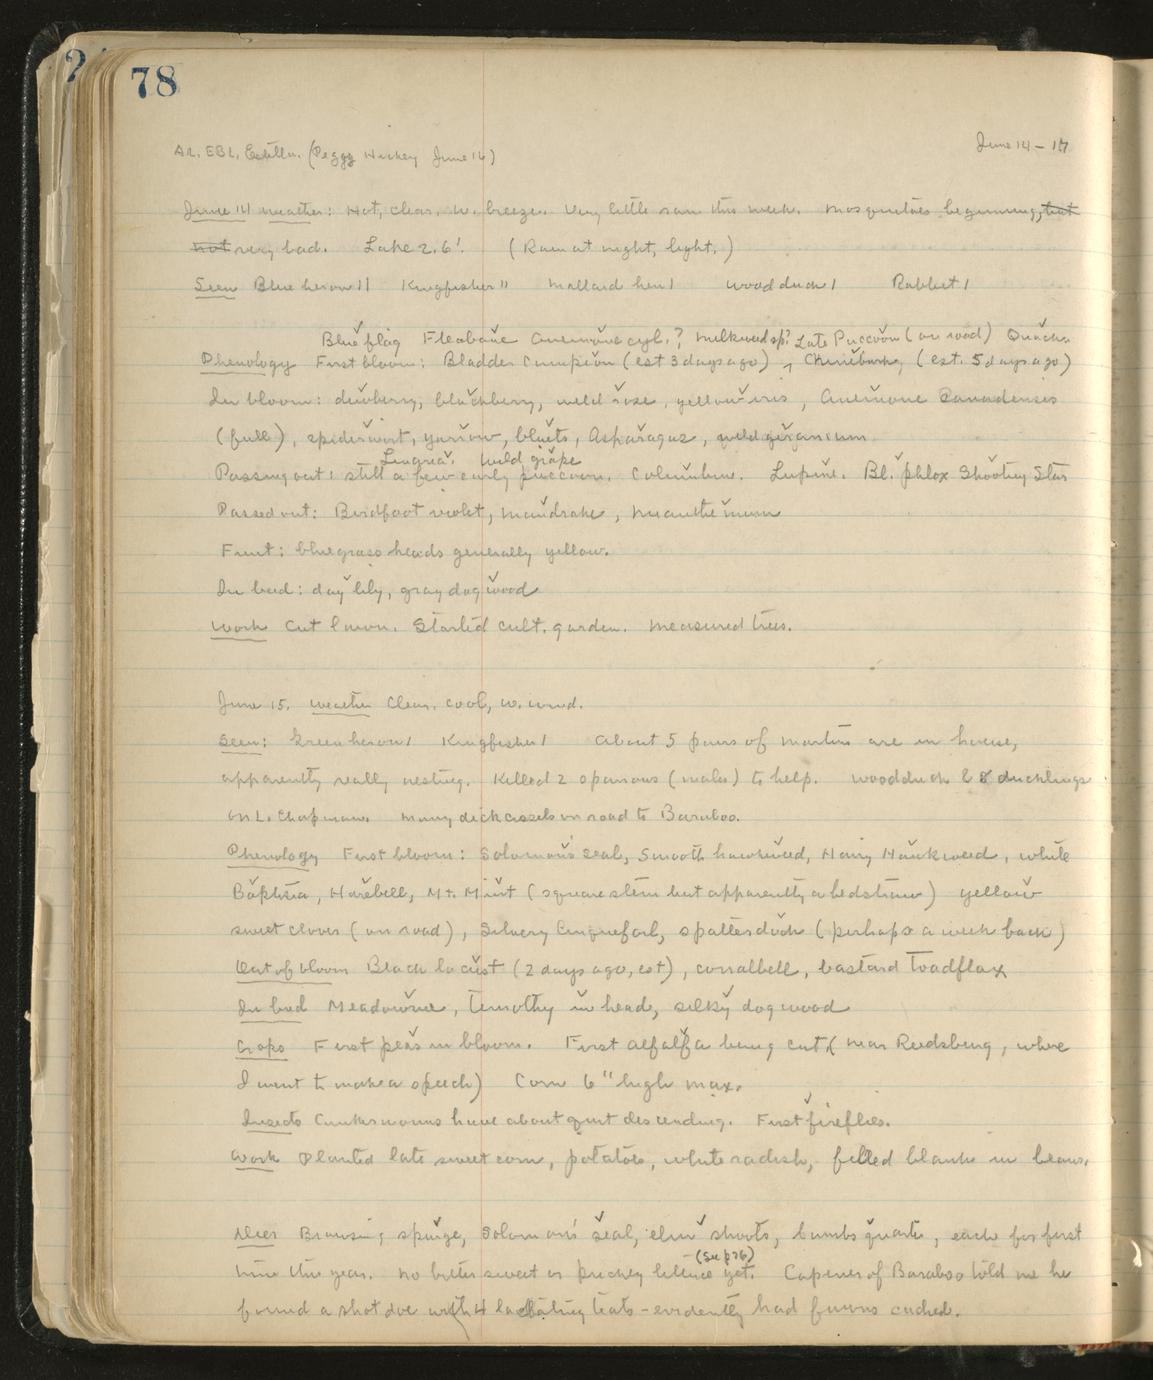 78
AL, EBL, Estella. (Peggy Hickey June 16)
June 14 - 17
June 14 weather: Hot, clear. W. breeze. Very little rain this week. Mosquitoes beginning, but
not very bad. Lake 2.6'. (Rain at night, light.)
Seen Blue heron 11 Kingfisher 11 Mallard hen 1 Woodduck 1 Rabbit 1
Blue flag Fleabane Anemone cyl.? Milkweed sp? Late Puccoon (on road)
Phenology First bloom: Bladder Campion (est 3 days ago), (est. 5 days ago)
In bloom: dewberry, blackberry, wild rose, yellow iris, Anemone Canadensis
(full), spiderwort, yarrow, bluets, Asparagus, wild geranium
Linaria. Wild grape
Passing out: still a few early puccoon. Columbine. Lupine. Bl. phlox Shooting Star
Passed out: Birdfoot violet, mandrake, mianthemum
Fruit: bluegrass heads generally yellow.
In bud: day lily, gray dogwood
Work Cut lawn. Started cult. garden. Measured trees.
June 15. Weather Clear, cool, W. wind.
Seen: Green heron 1 Kingfisher 1 About 5 pairs of martins are in house,
apparently really nesting. Killed 2 sparrows (males) to help. Woodduck & 8 ducklings
on L. Chapman. Many dickcissels on road to Baraboo.
Phenology First bloom: Solomon's seal, Smooth hawkweed, Hairy Hawkweed, white
Baptisia, Harebell, Mt. Mint (square stem but apparently a bedstraw) yellow
sweet clover (on road), Silvery Cinquefoil, spatterdock (perhaps a week back)
Out of bloom Black locust (2 days ago, est), corralbell, bastard Toadflax
In bud Meadowrue, timothy in head, silky dogwood
Crops First peas in bloom. First alfalfa being cut (near Reedsburg, where
I went to make a speech) Corn 6" high max.
Insects Cankerworms have about quit descending. First fireflies.
Work Planted late sweet corn, potatoes, white radish, filled blanks in beans.
Deer Browsing spurge, Solomon's seal, elm shoots, lambs quarter, each for first
(See p 76)
time this year. No bittersweet or prickey lettuce yet. Capener of Baraboo told me he
found a shot doe with 4 lactating teats - evidently had fawns cached.